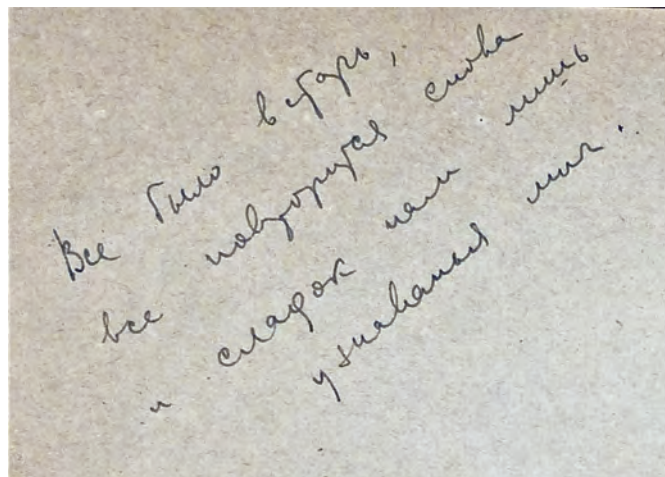 Все было встарь,
все повторится снова
и сладок нам лишь
узнаванья миг.